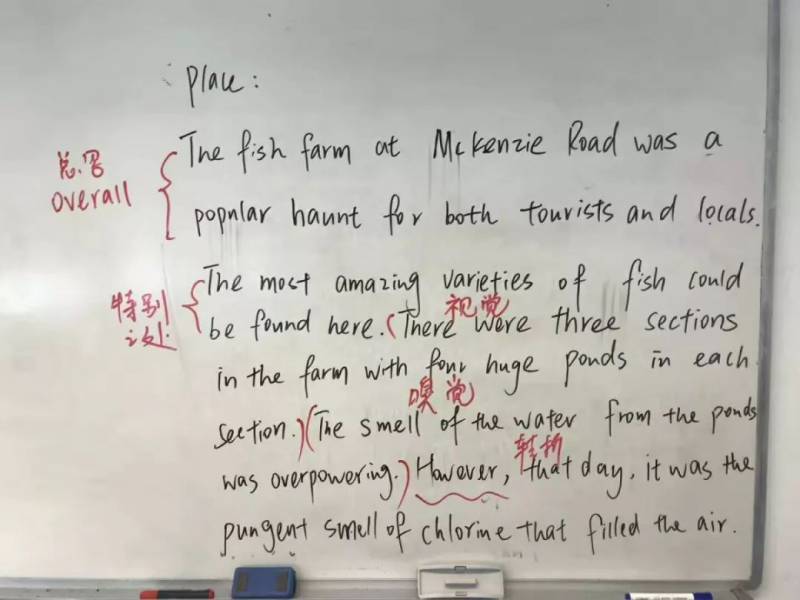 Place:
总写
overall
The fish farm at McKenzie Road was a
popular haunt for both tourists and locals.
特别
之处:
The most amazing varieties of fish could
视觉
be found here. (There were three sections
in the farm with four huge ponds in each
嗅觉
section.) (The smell of the water from the ponds
转折
was overpowering.) However, that day, it was the
pungent smell of chlorine that filled the air.